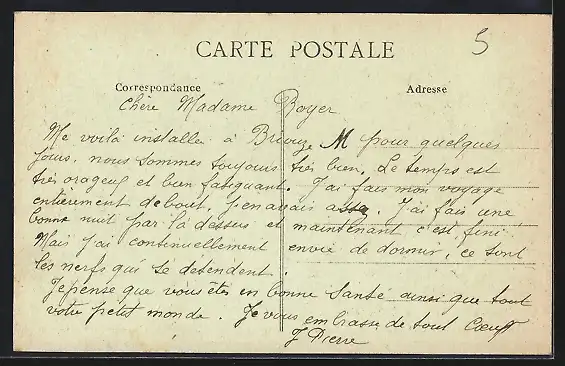 CARTE POSTALE
5
Correspondance
Adresse
Chère Madame Boyer
Me voilà installée à Briouze M pour quelques
jours. nous sommes toujours très bien, Le temps est
très orageux et bien fatiguant. J'ai fais mon voyage
entièrement debout, j'en avais assez. J'ai fais une
bonne nuit par là dessus et maintenant c'est fini.
Mais j'ai continuellement envie de dormir, ce sont
les nerfs qui se détendent.
Je pense que vous êtes en bonne santé ainsi que tout
votre petit monde. Je vous embrasse de tout Cœur
J Pierre